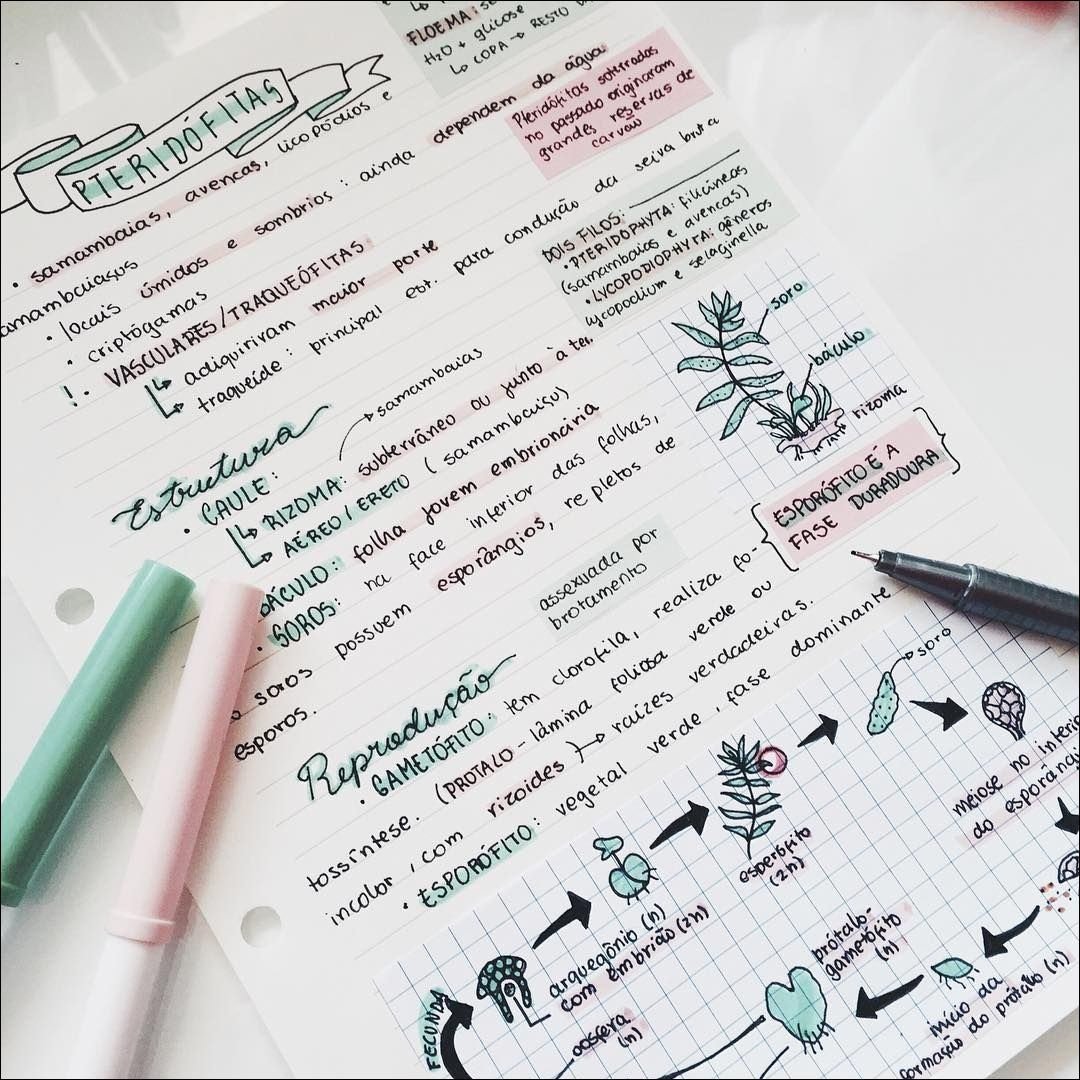 FLOEMA: se
H2O + glicose
↳ COPA → RESTO
PTERIDÓFITAS
• samambaias, avencas, licopódios e
amambaiaçus
• locais úmidos e sombrios: ainda dependem da água
• criptógamas
!• VASCULARES/TRAQUEÓFITAS
↳ adiquiriram maior porte
↳ traqueíde: principal est. para condução da seiva bruta
Pteridófitas soterradas
no passado originaram
grandes reservas de
carvão
DOIS FILOS:
• PTERIDOPHYTA: filicíneas
(samambaias e avencas)
• LYCOPODIOPHYTA: gêneros
lycopodium e selaginella
soro
báculo
rizoma
Estrutura
• CAULE:
→ samambaias
↳ RIZOMA: subterrâneo ou junto à ter.
↳ AÉREO/ERETO (samambaiçu)
BÁCULO: folha jovem embrionária
• SOROS: na face inferior das folhas,
o soros possuem esporângios, repletos de
esporos.
{ESPORÓFITO É A
FASE DURADOURA}
assexuada por
brotamento
Reprodução
• GAMETÓFITO: tem clorofila, realiza fo-
tossíntese. (PROTALO - lâmina foliosa verde ou
incolor, com rizoides) → raízes verdadeiras.
• ESPORÓFITO: vegetal verde, fase dominante
soro
meiose no interio
do esporângi
esperófito
(2n)
arquegônio (n)
com embrião (2n)
FECUNDA
oosfera
(n)
prótalo-
gametófito
(n)
início da
formação do prótalo (n)